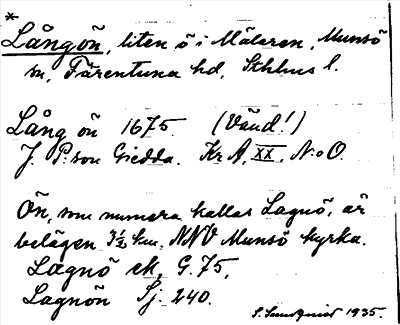 *
Långön, liten ö i Mälaren, Munsö
sn, Färentuna hd, Sthlms l.
Lång ön 1675. (Vänd!)
J. P:son Giedda. Kr A, XX, N:o O.
Ön, som numera kallas Lagnö, är
belägen 3½ km. NNV Munsö kyrka.
Lagnö ek, G. 75,
Lagnön Sj. 240.
1935.